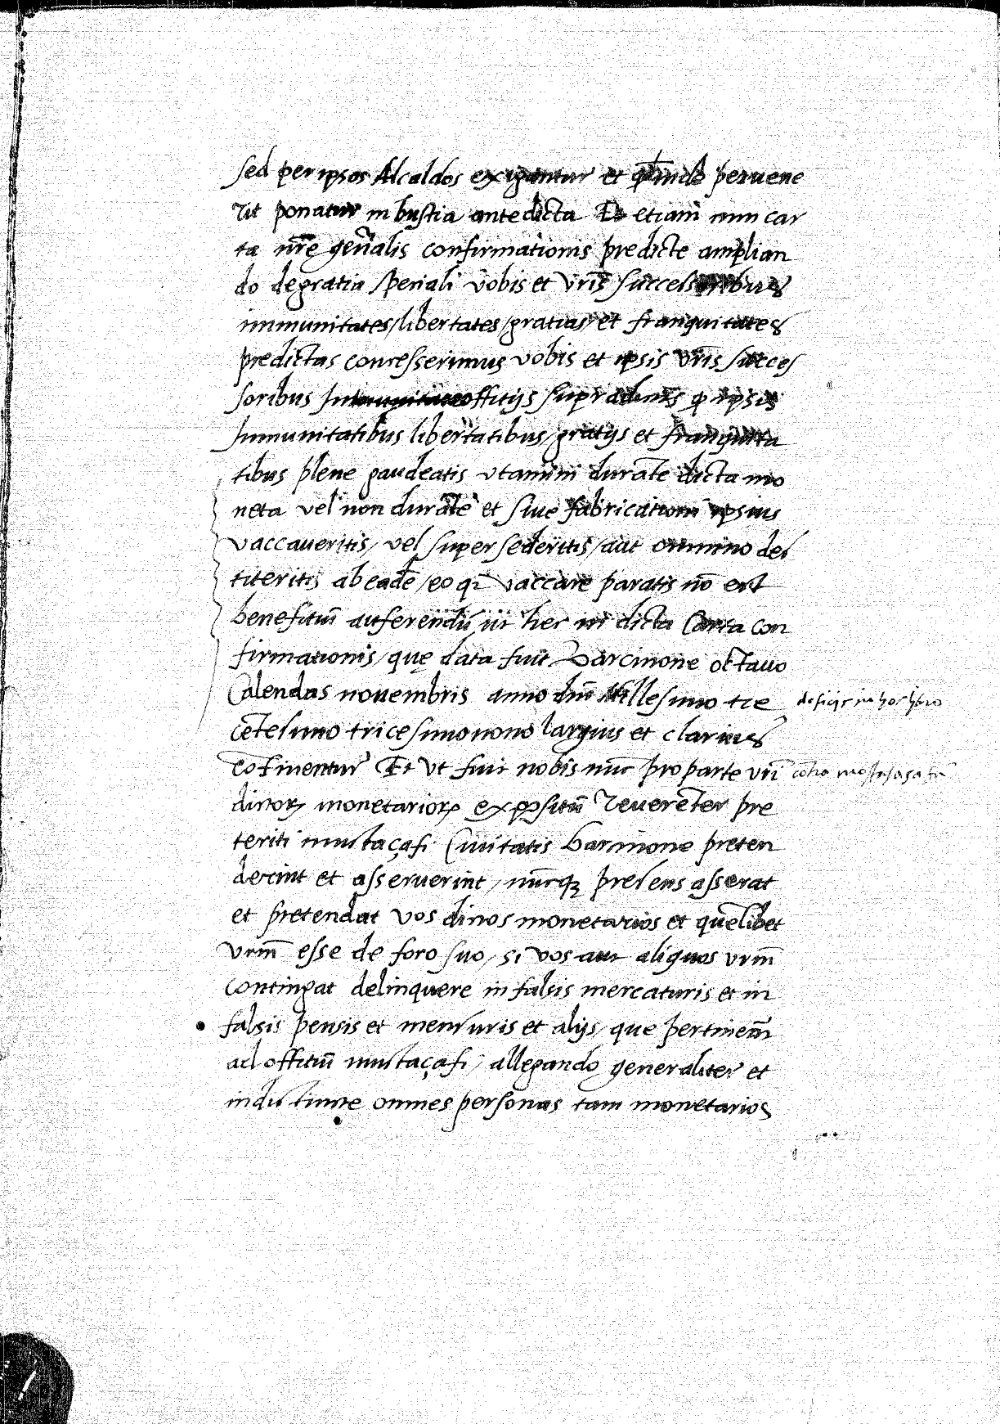 sed per ipsos Alcaldos exigantur et peruene
rit ponatur in bustia antedicta Et etiam cum car
ta nr̄e gen̄alis confirmationis predicte amplian
do de gratia speciali vobis et vr̄is successoribus
immunitates/libertates/gratias et franquitates
predictas concesserimus vobis et ipsis vr̄is succes
soribus offitijs supradictis ipsis
Immunitatibus libertatibus/gratijs et franquita
tibus plene gaudeatis durāte dicta mo
neta vel non durāte et siue fabricationi ipsius
vaccaueritis/vel super sederitis/aut omnino des
titeritis ab eadē/eo qi vaccare paratis nō est
benefitiū auferendū ut hec in dicta Carta con
firmationis/quę data fuit Barcinone octauo
Calendas nouembris anno dn̄i Millesimo tre
cētesimo tricesimonono largius et clarius
cōtinentur Et vt fuit nobis nūc pro parte vr̄i
dictorꝝ monetariorꝝ expositū reuerēter pre
teriti mustaçafi Ciuitatis barcinone preten
derint et asseruerint/nūcqꝫ presens asserat
et pretendat vos dictos monetarios et quēlibet
vrm̄ esse de foro suo/si vos aut aliquos vrm̄
contingat delinquere in falsis mercaturis et in
falsis pensis et mensuris et alijs/que pertinēt
ad offitiū mustaçafi/allegando generaliter et
indistincte omnes personas tam monetarios
deficit in hoc libro
cōtra mostasafa